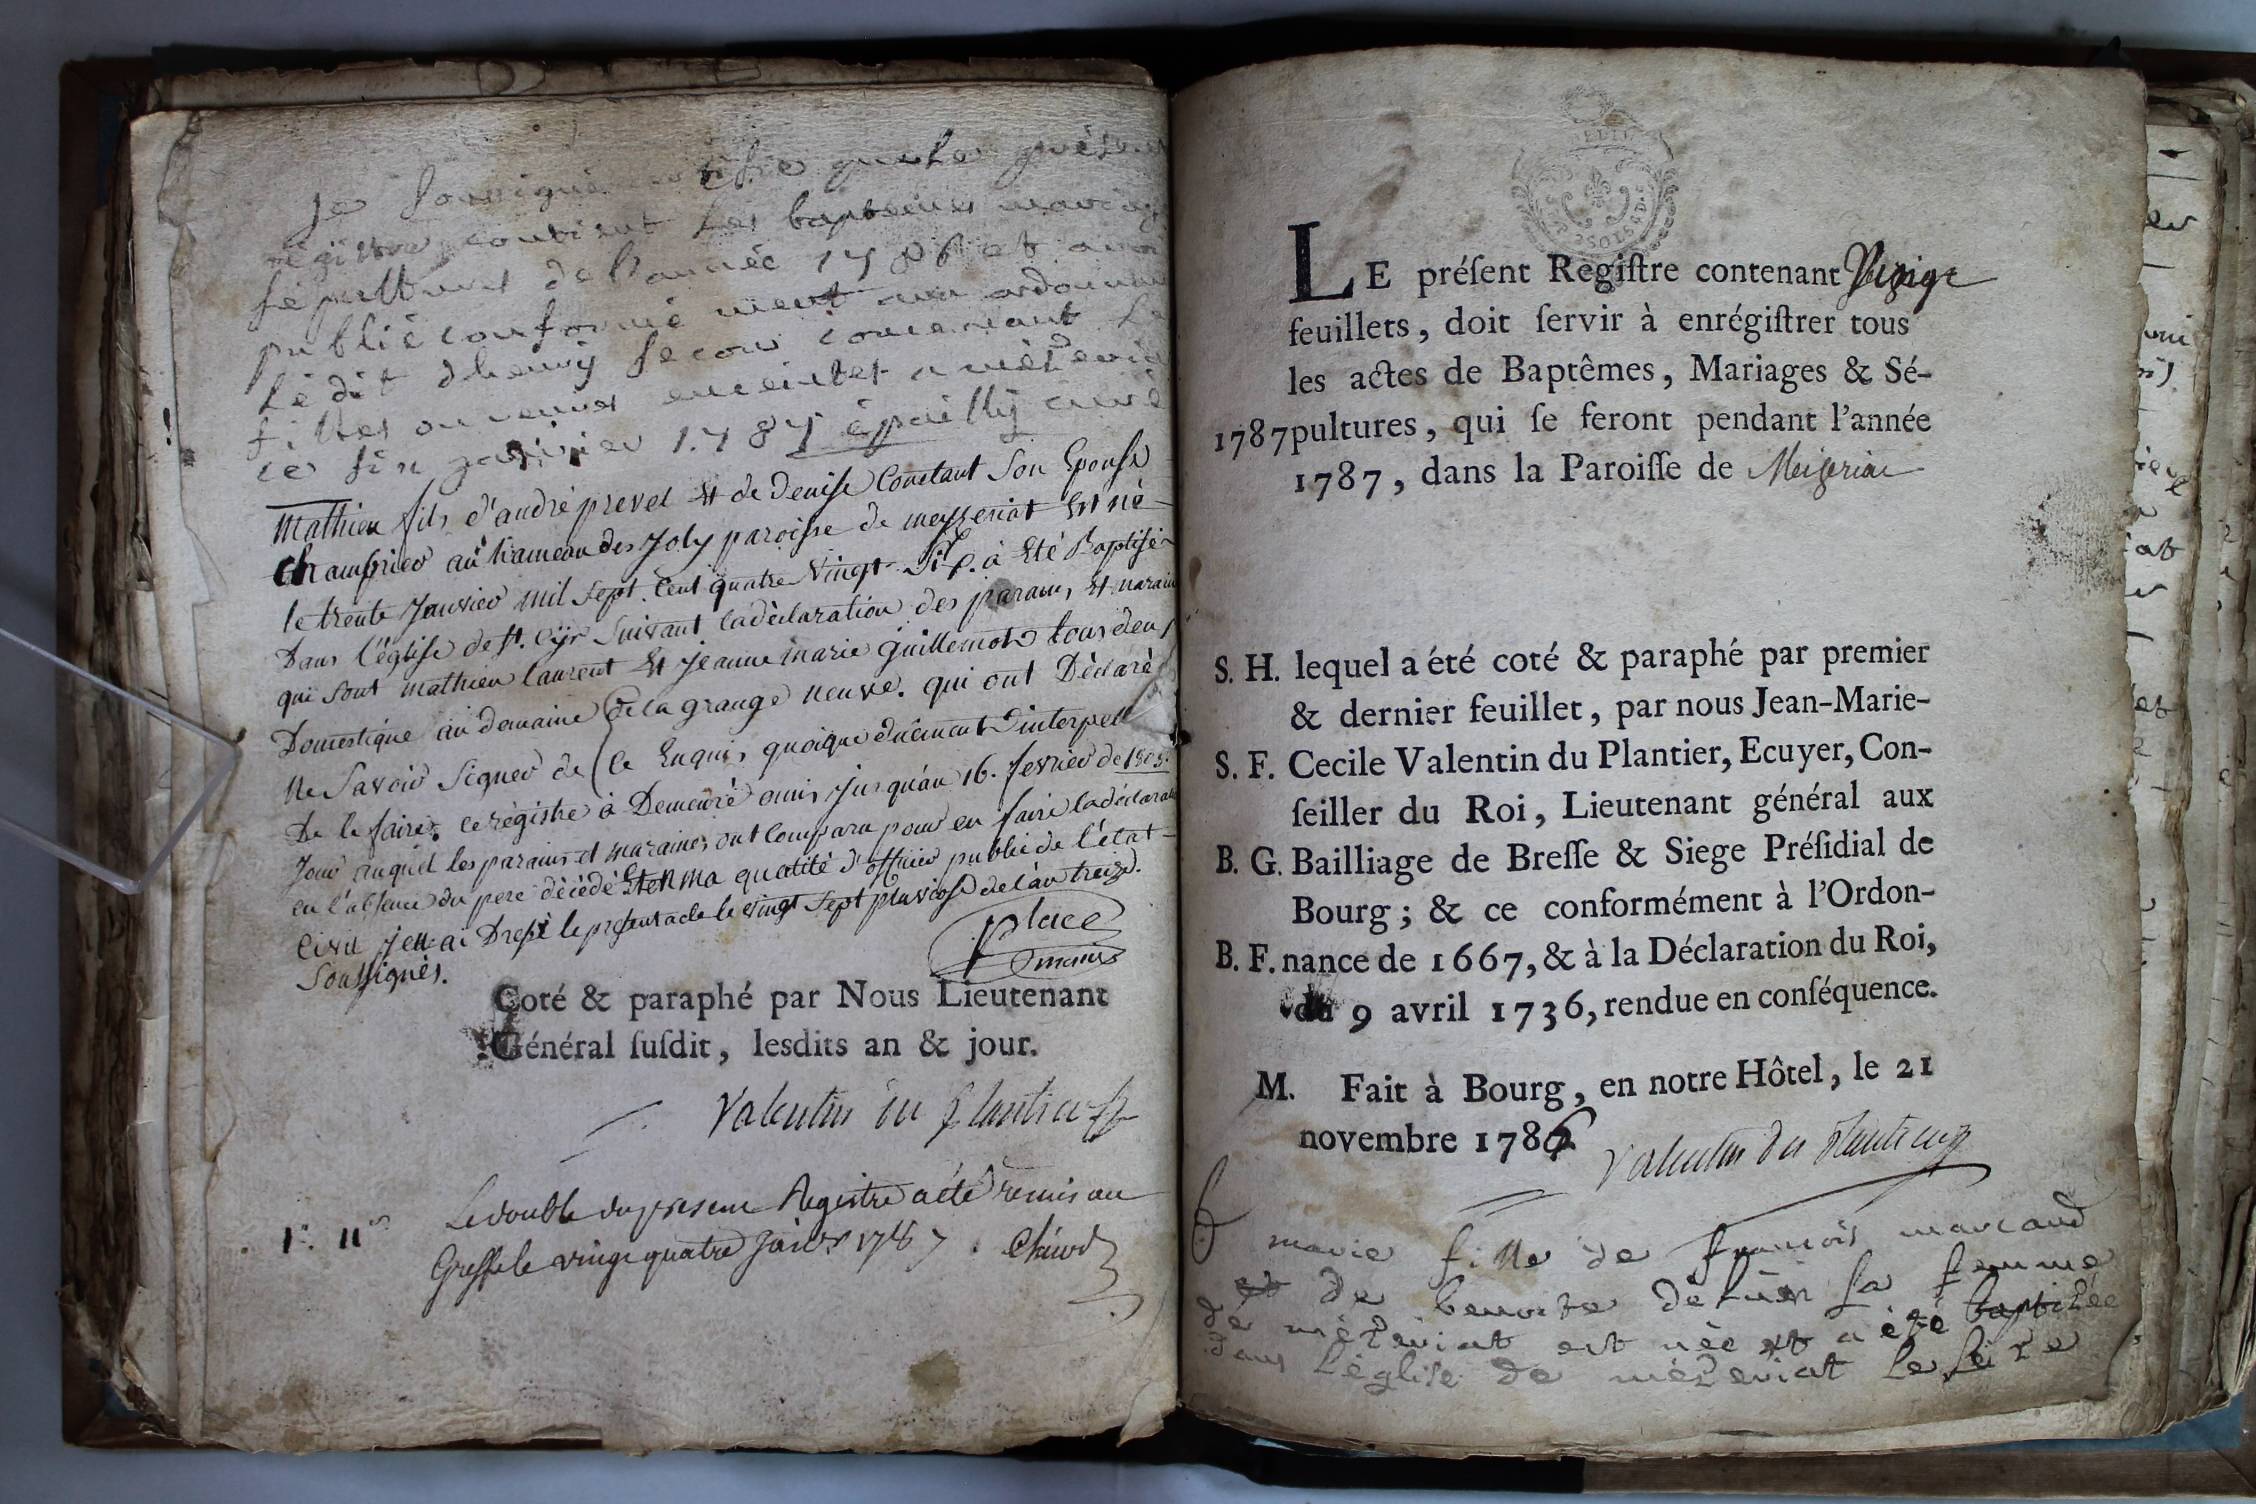 Je soussigné certifie que le présent
régistre contient les baptemes mariages
sépultures de l'année 1786 et avoir
publié conformé ment aux ordonnan
L'édit d'henry second concernant le
filles ou veuves enceintes a mézeria
ce six janvier 1787 épailly curé
Mathieu fils d'andré prevel Et de denise Constant son Epouse
au hameau des Joly paroisse de meyzeriat Est né
le trente Janvier mil sept. Cent quatre Vingt Six. à Eté Baptisé
Dans l'église de st. Cyr Suivant la déclaration des parains, Et marain
qui sont mathieu laurent Et Jeanne marie guillemot tous deux
Domestique au domaine de la grange neuve. qui ont Déclaré
Ne Savoir Signer de Ce Enquis, quoique duëment interpell
De le faire. ce régistre à Demeuré omis jusqu'au 16. fevrier de 1805.
Jour auquel les parains et maraines ont Comparu pour en faire la déclarat
en l'absence du pere décédé Et en ma qualité d'officier public de l'état-
Civil j'en ai Dressé le présent acte le vingt sept pluviose de l'an treize.
Soussignés. Place
maire
Coté & paraphé par Nous Lieutenant
Général ſuſdit, lesdits an & jour.
Valentin du Plantier
Le double du present Registre a été remis au
Greffe le vingt quatre Janvr 1787.
LE préſent Regiſtre contenant
feuillets, doit ſervir à enrégiſtrer tous
les actes de Baptêmes, Mariages & Sé-
1787 pultures, qui ſe feront pendant l'année
1787, dans la Paroiſſe de Meizeriac
S. H. lequel a été coté & paraphé par premier
& dernier feuillet, par nous Jean-Marie-
S. F. Cecile Valentin du Plantier, Ecuyer, Con-
ſeiller du Roi, Lieutenant général aux
B. G. Bailliage de Breſſe & Siege Préſidial de
Bourg ; & ce conformément à l'Ordon-
B. F. nance de 1667, & à la Déclaration du Roi,
du 9 avril 1736, rendue en conſéquence.
M. Fait à Bourg, en notre Hôtel, le 21
novembre 1786 Valentin du Plantier
marie fille de françois marcaud
et de benoite la femme
de mézeriat est née et a été baptizée
dans l'église de mézeriat le seize